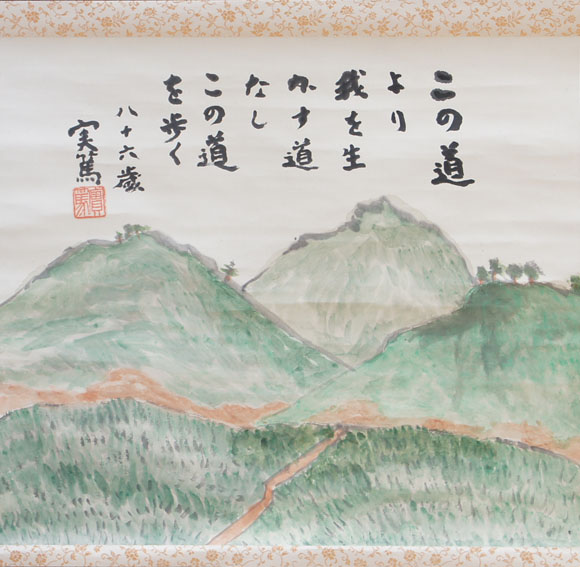 この道
より
我を生
かす道
なし
この道
を歩く
八十六歳
実篤
實篤